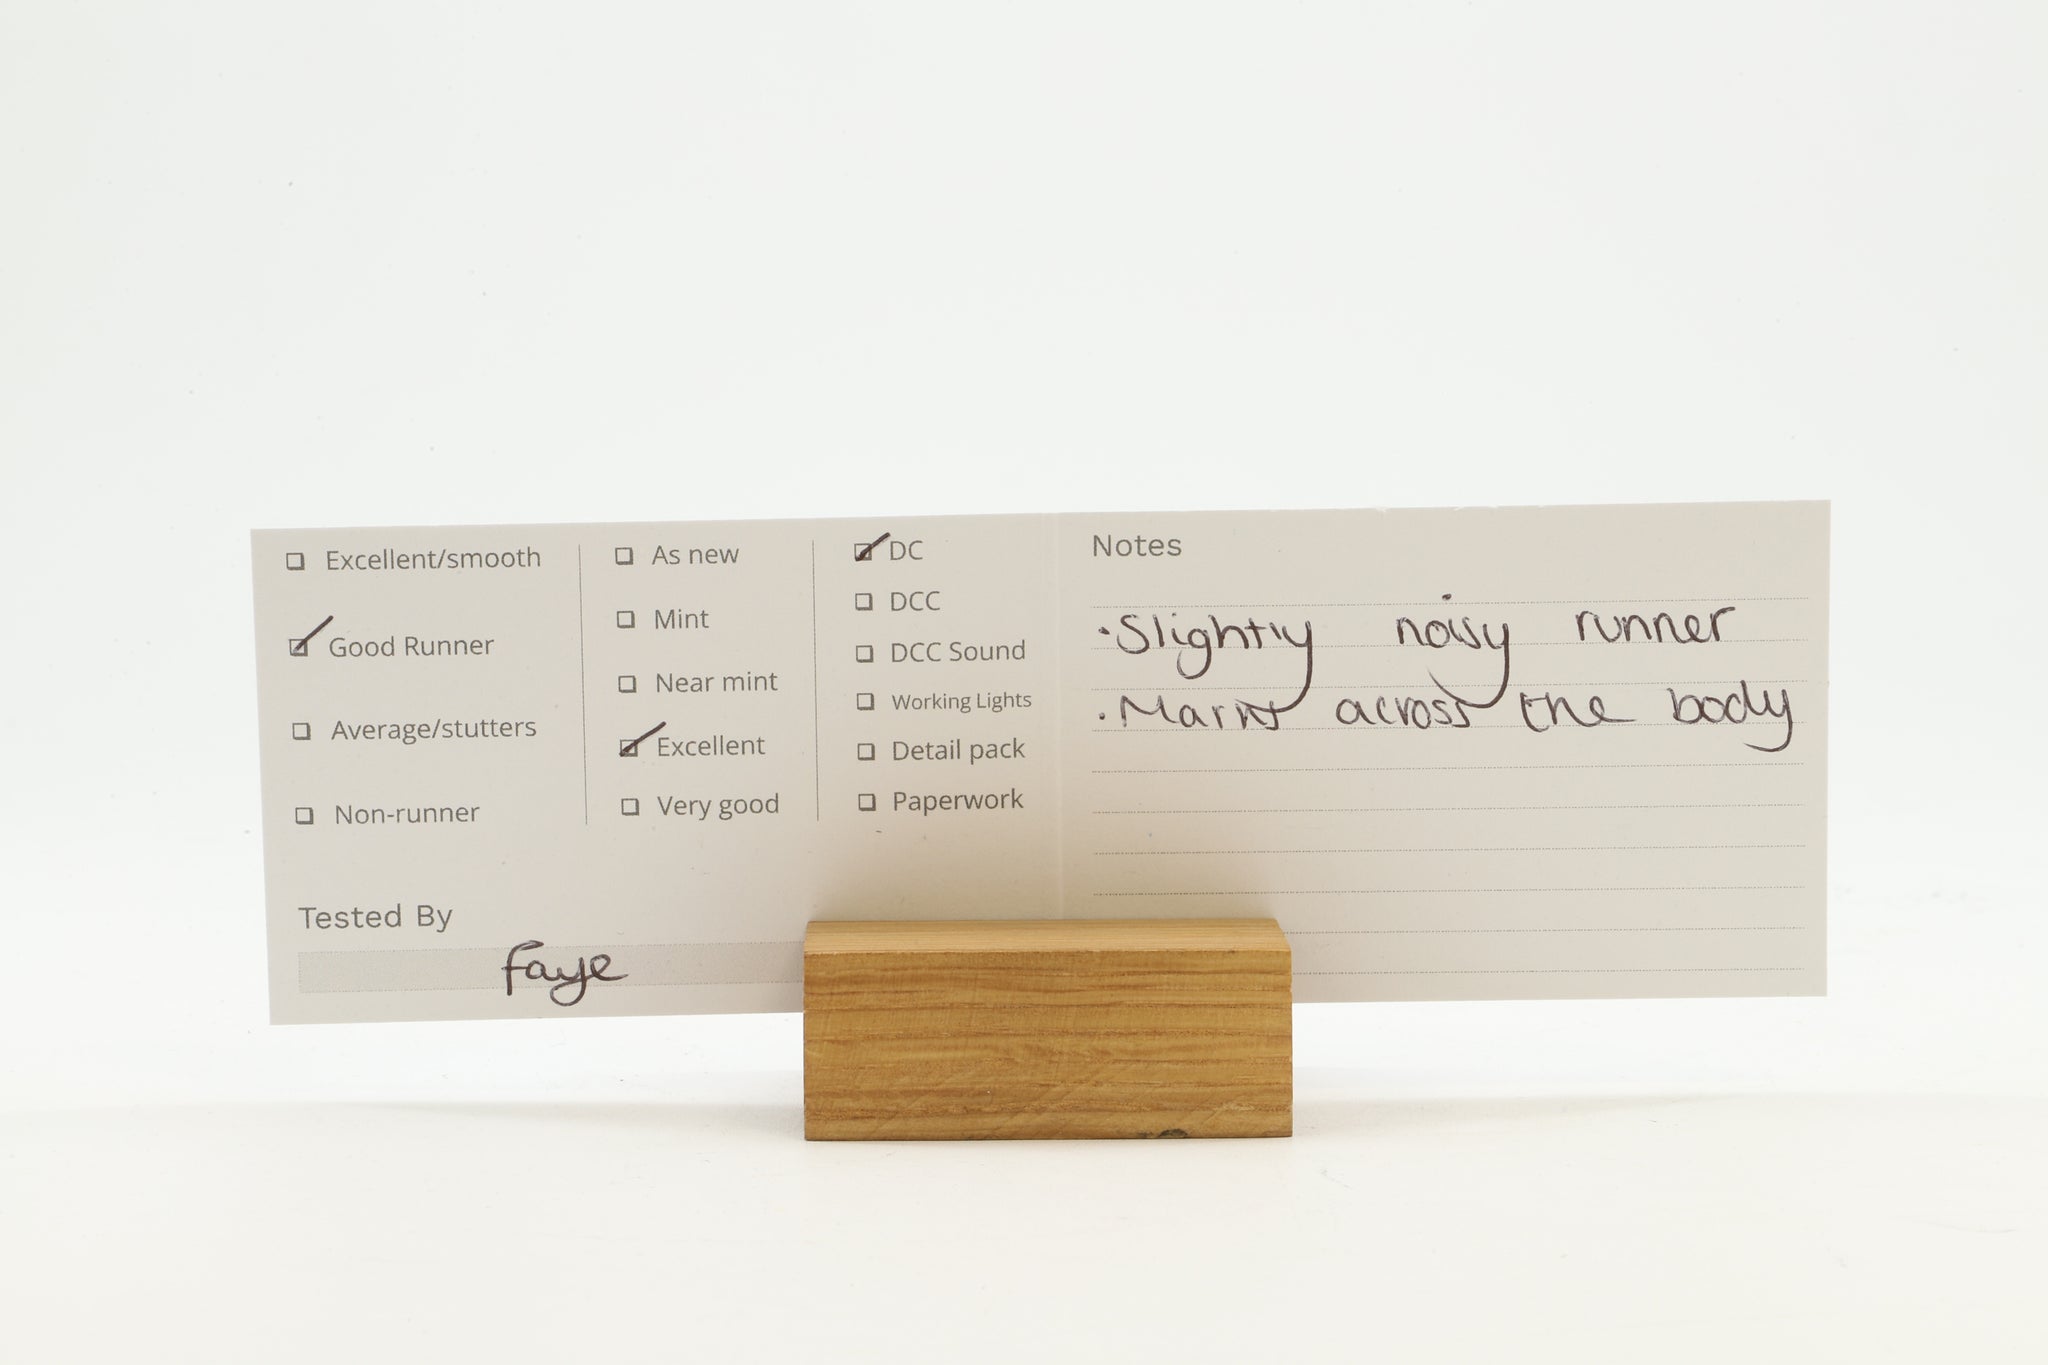 Excellent/smooth
Good Runner
Average/stutters
Non-runner
As new
Mint
Near mint
Excellent
Very good
DC
DCC
DCC Sound
Working Lights
Detail pack
Paperwork
Tested By
faye
Notes
·Slightly noisy runner
·Marks across the body